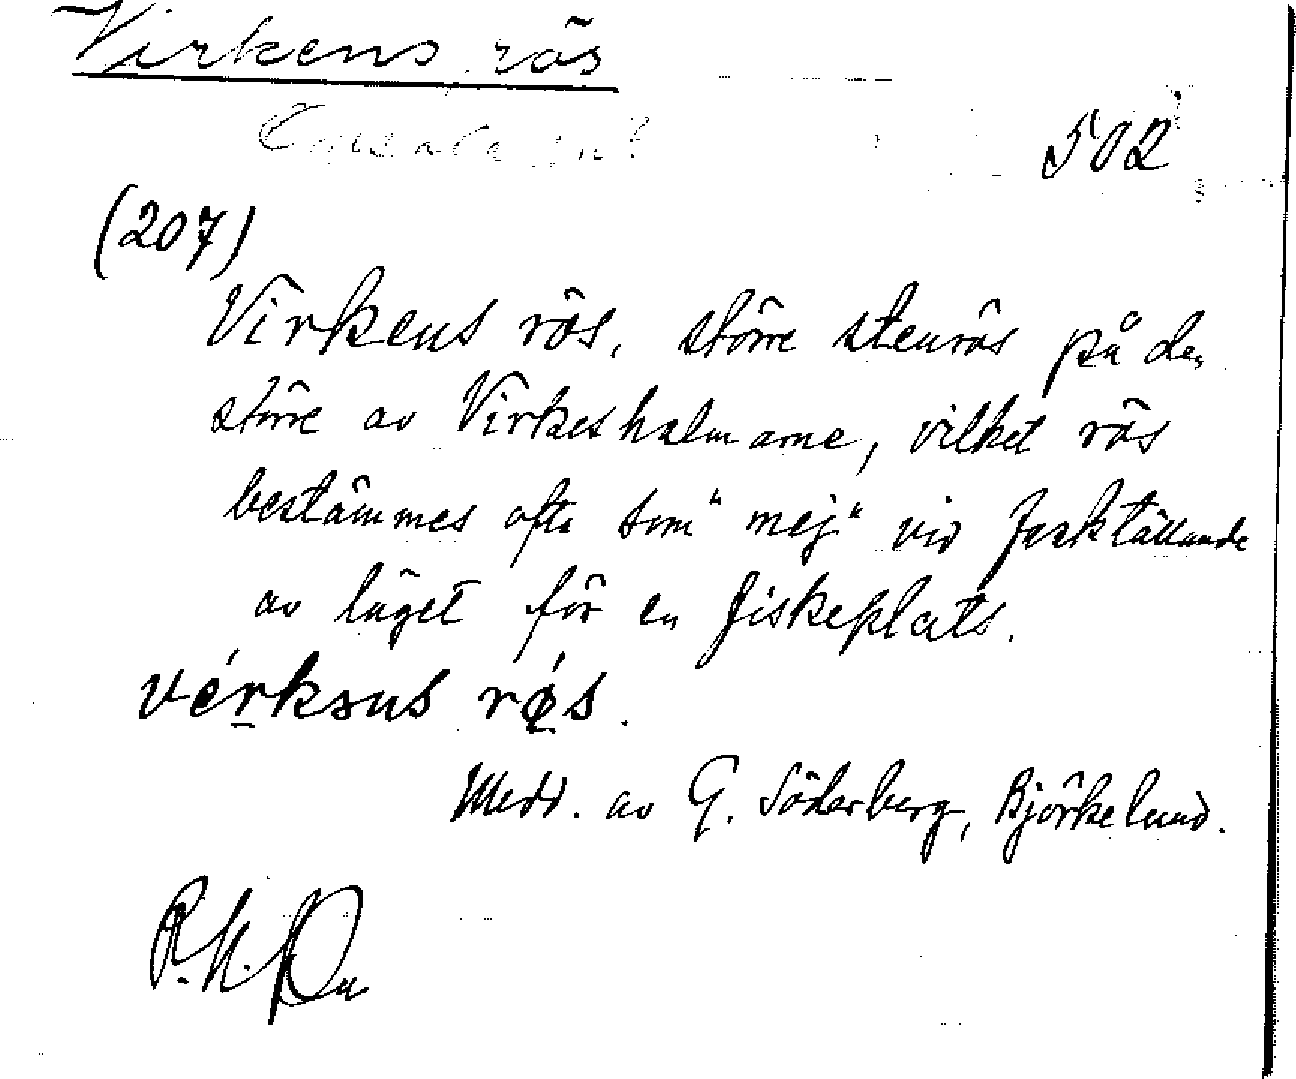 Virkens rös
502
(207)
Virkens rös, större stenrös på den
större av Virkesholmarne, vilket rös
bestämmes ofta som "mej" vid fastställande
av läget för en fiskeplats.
Medd. av G. Söderberg, Björkelund.